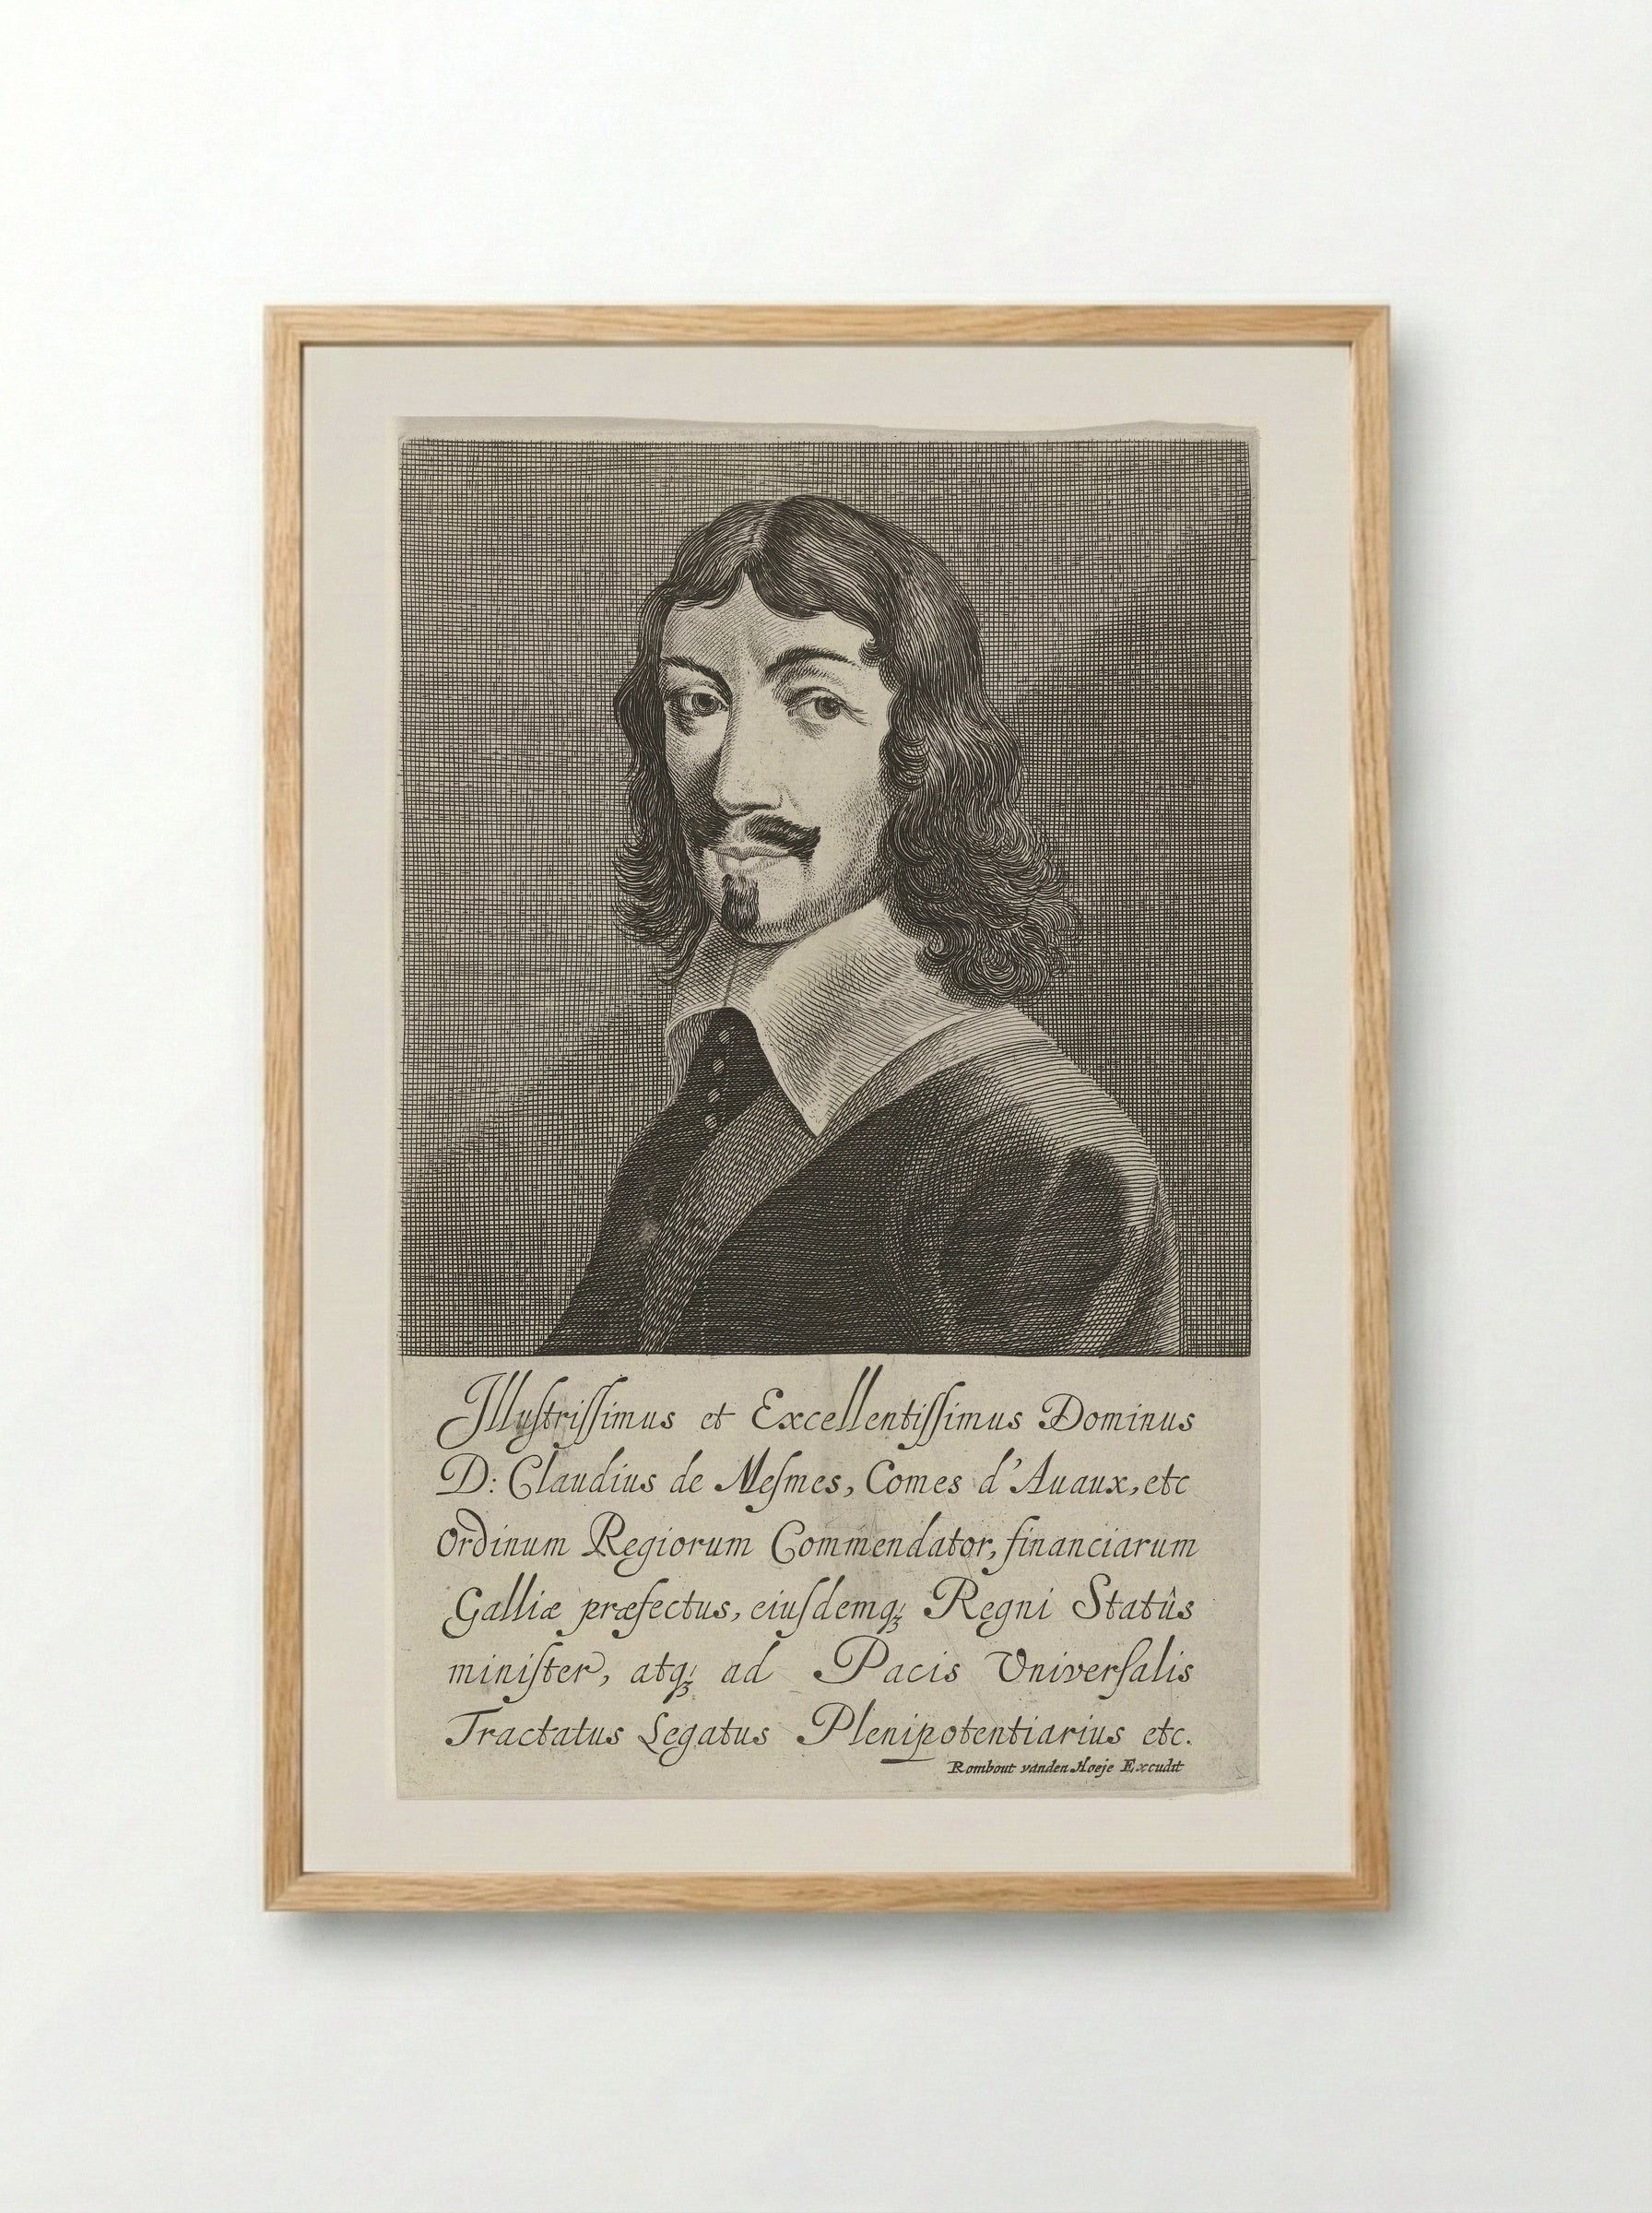 Illuſtriſſimus et Excellentiſſimus Dominus
D: Claudius de Meſmes, Comes d'Auaux, etc
Ordinum Regiorum Commendator, financiarum
Galliæ præfectus, eiuſdemqꝫ Regni Statûs
miniſter, atqꝫ ad Pacis Univerſalis
Tractatus Legatus Plenipotentiarius etc.
Rombout vanden Hoeje Excudit